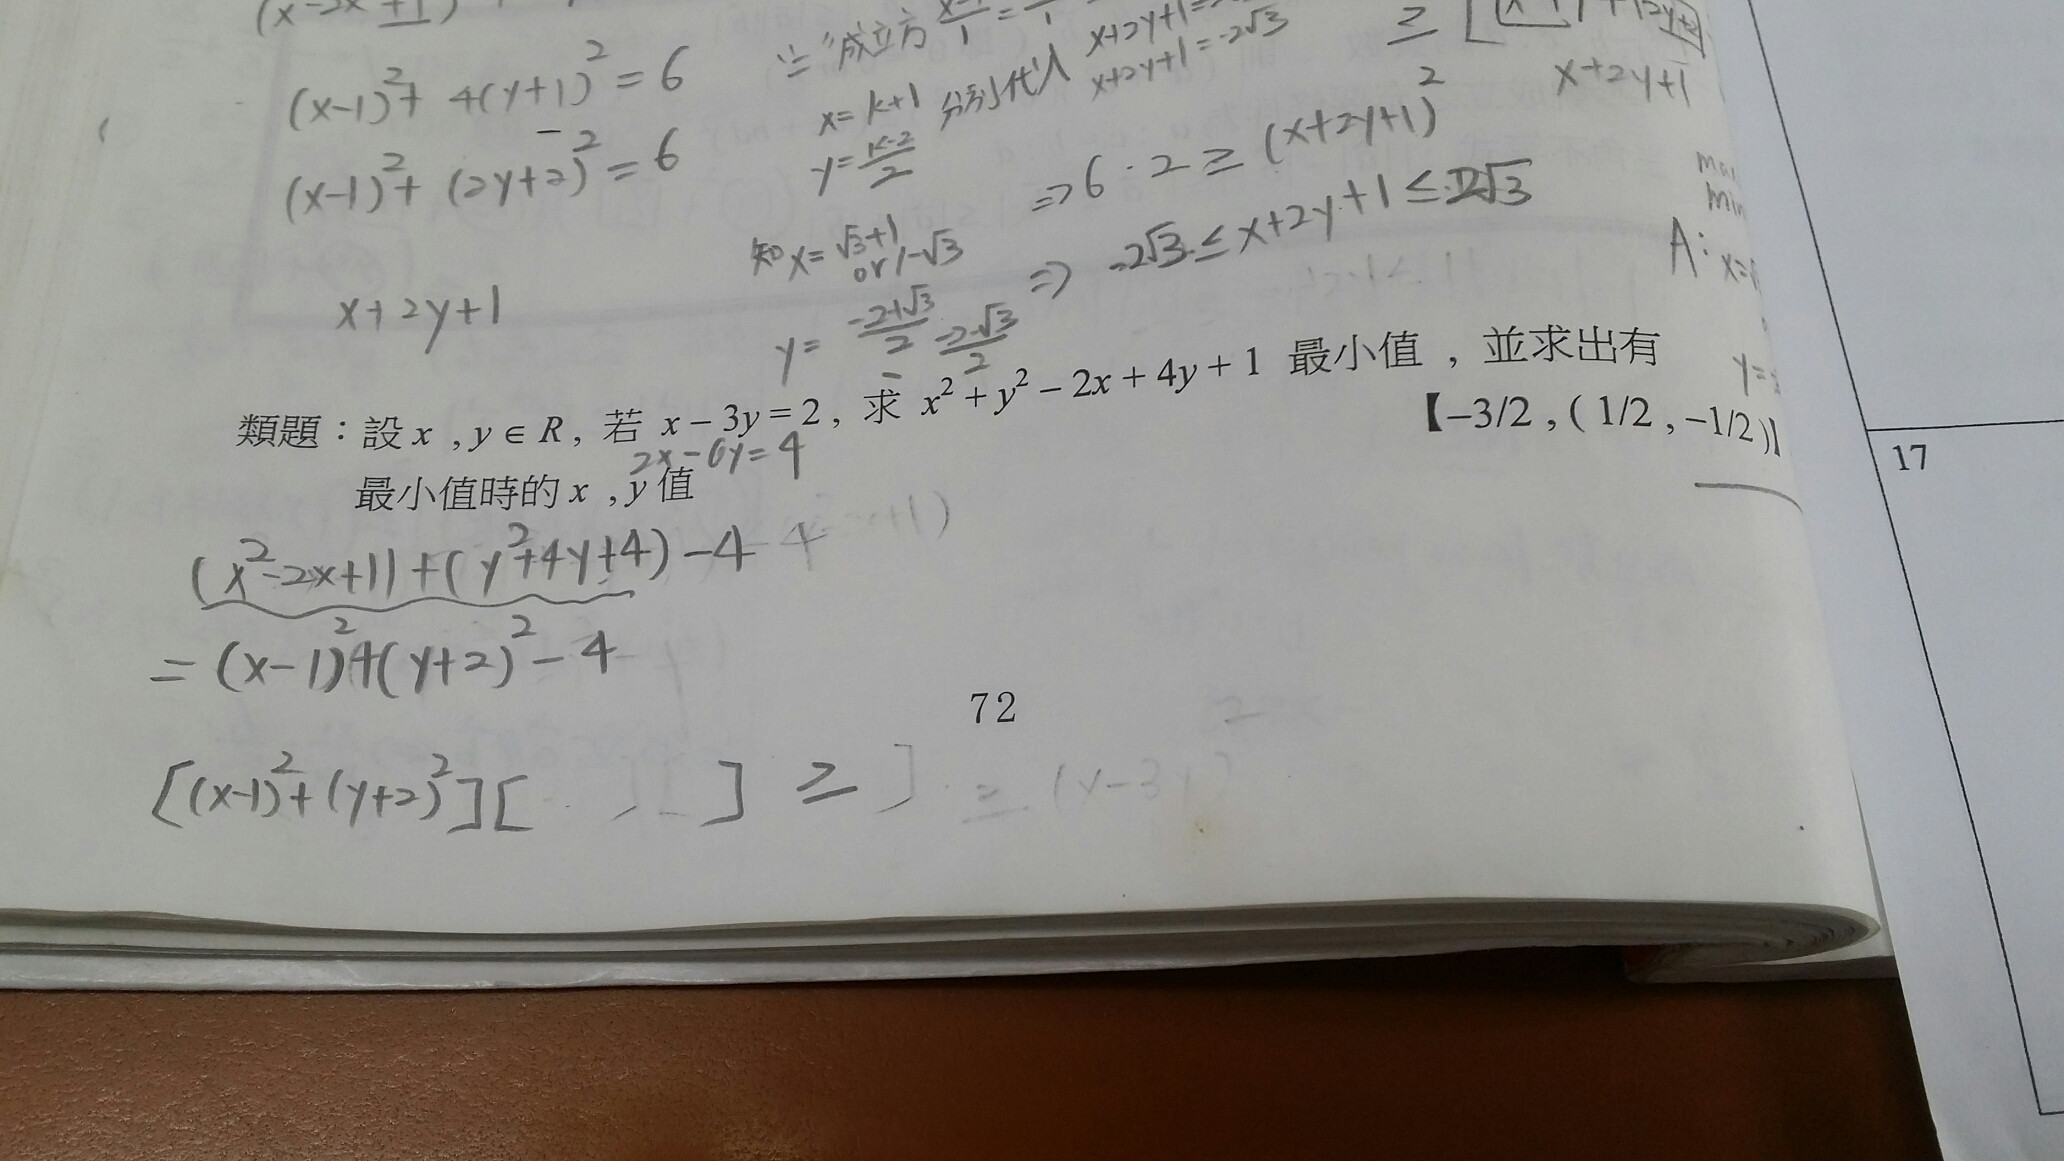 (x-2x+1)
(x-1)²+ 4(y+1)² = 6
(x-1)²+ (2y+2)² = 6
x+2y+1
"="成立方
x=k+1
y=\frac{k-2}{2}
分別代入
x+2y+1=
x+2y+1=-2√3
知x= √3+1
or 1-√3
y= \frac{-2+√3}{2} \frac{-2-√3}{2}
≥
x+2y+1
⇒6·2≥(x+2y+1)²
⇒ -2√3≤x+2y+1≤2√3
min
A: x=
y=
類題：設 x , y ∈ R , 若 x − 3y = 2 , 求 x² + y² − 2x + 4y + 1 最小值 , 並求出有
最小值時的 x , y 值
【−3/2 , ( 1/2 , −1/2 )】
2x-6y=4
(x²-2x+1)+(y²+4y+4)-4
=(x-1)²+(y+2)²-4
72
[(x-1)²+(y+2)²][ ] ≥
≥ (x-3y)
17